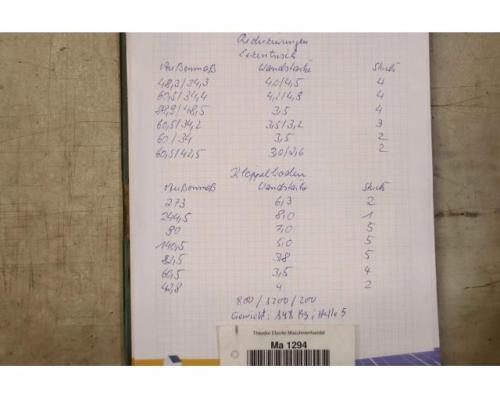 Reduzierungen
Exzentrisch
Außenmaß Wandstärke Stück
48,3/34,3 4,0/4,5 4
60,5/34,4 4,1/4,8 4
88,9/48,5 3,5 4
60,5/34,2 3,5/3,2 3
60/34 3,5 2
60,5/42,5 3,0/2,6 2
Klöpperboden
Außenmaß Wandstärke Stück
273 6,3 2
244,5 8,0 1
90 7,0 5
140,5 5,0 5
82,5 3,8 5
60,5 3,5 4
42,8 4 2
800/1200/200
Gewicht: 148 Kg, Halle 5
Ma 1294